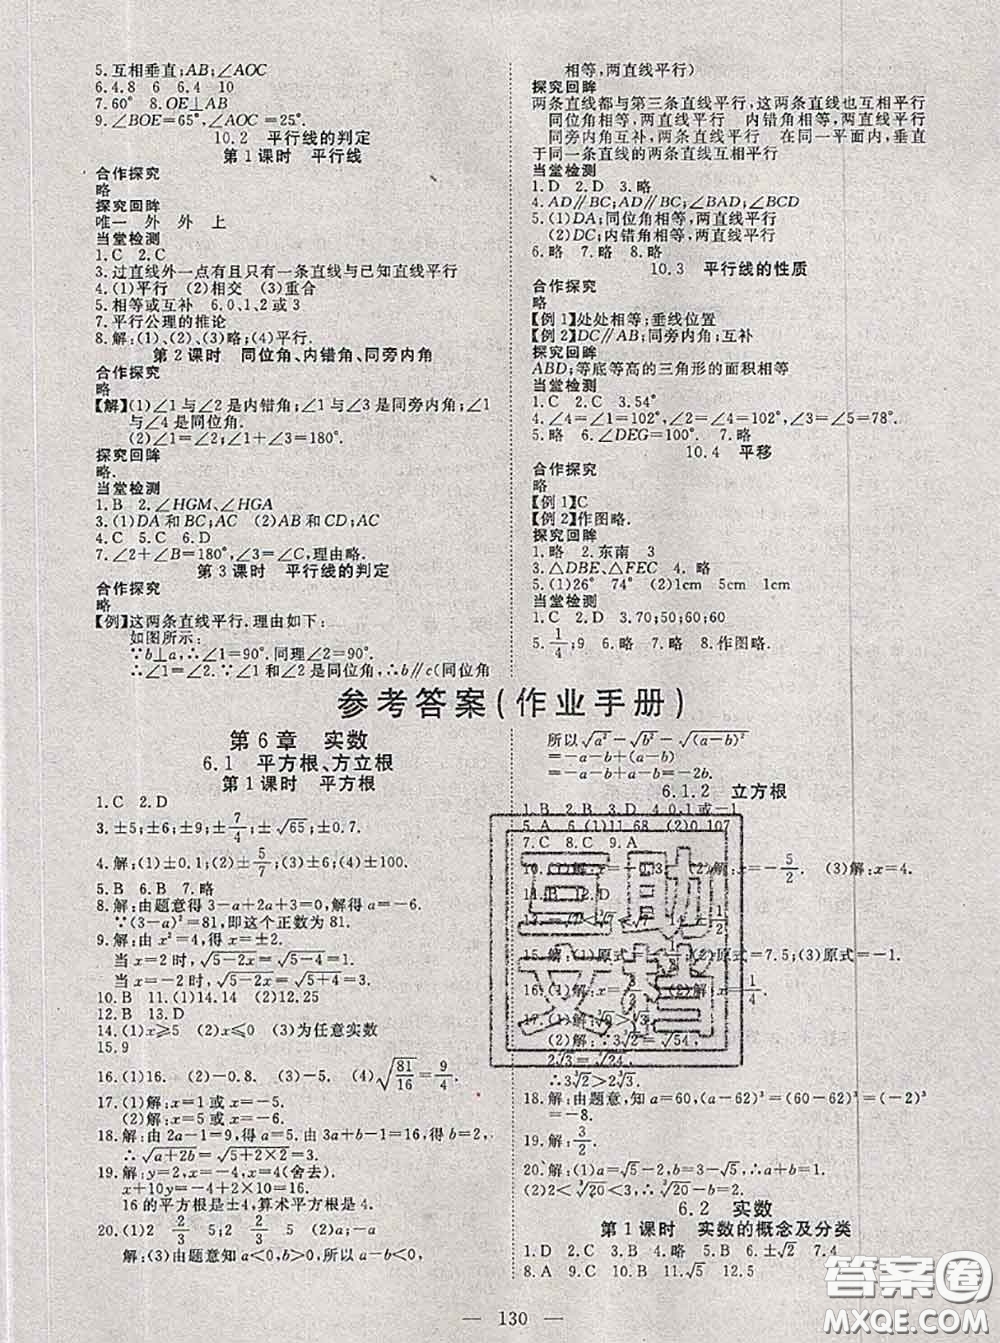 5.互相垂直;AB;∠AOC
6.4.8 6 6.4 10
7.60° 8.OE⊥AB
9.∠BOE=65°,∠AOC=25°.
10.2 平行线的判定
第1课时 平行线
合作探究
略
探究回眸
唯一 外 外 上
当堂检测
1.C 2.C
3.过直线外一点有且只有一条直线与已知直线平行
4.(1)平行 (2)相交 (3)重合
5.相等或互补 6.0、1、2 或 3
7.平行公理的推论
8.解:(1)、(2)、(3)略;(4)平行.
第2课时 同位角、内错角、同旁内角
合作探究
略
【解】(1)∠1与∠2是内错角;∠1与∠3是同旁内角;∠1
与∠4是同位角.
(2)∠1=∠2;∠1+∠3=180°.
探究回眸
略.
当堂检测
1.B 2.∠HGM、∠HGA
3.(1)DA和BC;AC (2)AB和CD;AC
4.C 5.C 6.D
7.∠2+∠B=180°,∠3=∠C,理由略.
第3课时 平行线的判定
合作探究
略
【例】这两条直线平行.理由如下:
如图所示:
∵b⊥a,∴∠1=90°.同理∠2=90°.
∴∠1=∠2.∵∠1和∠2是同位角,∴b∥c(同位角
相等,两直线平行)
探究回眸
两条直线都与第三条直线平行,这两条直线也互相平行
同位角相等,两直线平行 内错角相等,两直线平行
同旁内角互补,两条直线平行 在同一平面内,垂直
于同一条直线的两条直线互相平行
当堂检测
1.D 2.D 3.略
4.AD∥BC;AD∥BC;∠BAD;∠BCD
5.(1)DA;同位角相等,两直线平行
(2)DC;内错角相等,两直线平行
6.略 7.略 8.略
10.3 平行线的性质
合作探究
略
【例1】处处相等;垂线位置
【例2】DC∥AB;同旁内角;互补
探究回眸
ABD;等底等高的三角形的面积相等
当堂检测
1.C 2.C 3.54°
4.∠4=∠1=102°,∠2=∠4=102°,∠3=∠5=78°.
5.略 6.∠DEG=100°. 7.略
10.4 平移
合作探究
略
【例1】C
【例2】作图略.
探究回眸
1.略 2.东南 3
3.△DBE、△FEC 4.作图略.
5.(1)26° 74° (2)1cm 5cm 1cm
当堂检测
1.C 2.D 3.70;50;60;60
5.1/4;9 6.略 7.略 8.略
参考答案(作业手册)
第6章 实数
6.1 平方根、方立根
第1课时 平方根
1.C 2.D
3.±5;±6;±9;±7/4;±√65;±0.7.
4.解:(1)±0.1;(2)±5/7;(3)±6;(4)±100.
5.B 6.B 7.略
8.解:由题意得 3-a+2a+3=0,解得a=-6.
∵(3-a)²=81,即这个正数为81.
9.解:由x²=4,得x=±2.
当x=2时,√(5-2x)=√(5-4)=1.
当x=-2时,√(5-2x)=√(5+4)=3.
10.B 11.(1)14.14 (2)0.1414
12.B 13.D
14.(1)x⩾5 (2)x⩽0 (3)为任意实数
15.9
16.(1)16. (2)-0.8. (3)-51. (4)√(81/16)=9/4.
17.(1)解:x=1或x=-5.
(2)解:x=5或x=-6.
18.解:由2a-1=9,得a=5.由3a+b-1=16,得b=2.
∴√(a+2b)=√(5+2×2)=3.
19.解:y=2,x=-4,x=4(舍去).
x+10y=-4+2×10=16.
16的平方根是±4,算术平方根是4.
20.(1)2 2/3 5 2/3 0 (2)a;-a
解:(3)由题意知a<0,b>0,所以a-b<0,
所以√a²-√b²-√(a-b)²
=-a-b+(a-b)
=-a-b+a-b=-2b.
6.1.2 立方根
1.B 2.B 3.D 4.0,1或-1
5.A 6.(1)11.68 (2)0.107
7.C 8.C 9.A
(2)解:x=-5/2. (3)解:x=4.
12.D
15.解:(1)原式=
(2)原式=7.5;(3)原式=-1.
16.(1)解:x=3/2 (2)解:x=1/4.
(2)解:∵3∛2=∛54,
2∛3=∛24.
∴3∛2>2∛3.
18.解:由题意,知a=60,(a-62)³=(60-62)³=(-2)³
=-8.
19.解:3/2.
20.解:(1)a=√5-2,b=3-√5,∴a+b=1.
(2)2<∛20<3,∴∛20-b=2.
6.2 实数
第1课时 实数的概念及分类
1.D 2.D 3.B 4.略 5.2 6.±√2 7.4
8.A 9.C 10.B 11.√5 12.5
130
答案圈
MXQE.COM